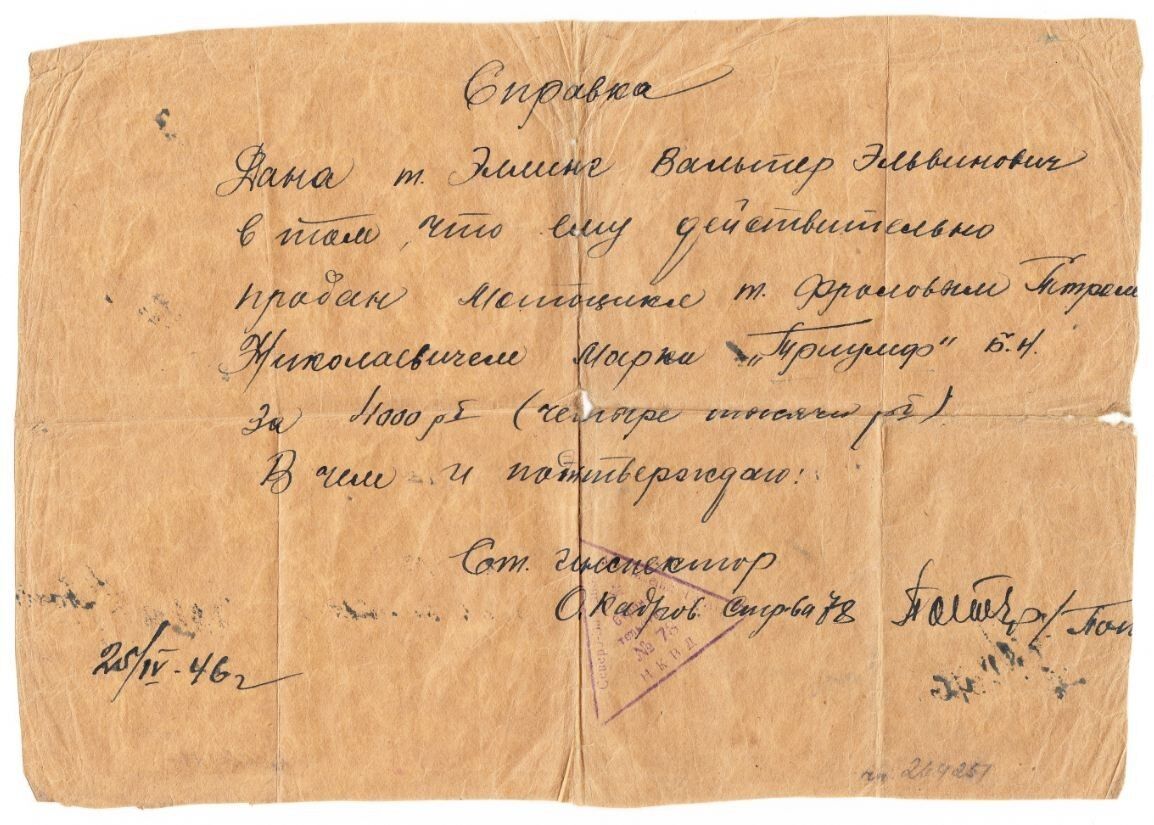 Справка
Дана т. Эллинг Вальтер Эльвинович
в том, что ему действительно
продан мотоцикл т. Фроловым Птром
Николаевичем марки „Триумф" б.н.
за 4000 рб (четыре тысячи рб)
В чем и подттверждаю:
Ст. инспектор
О Кадров Стр-ва 78
25/IV-46 г
№ 78
НКВД
264251